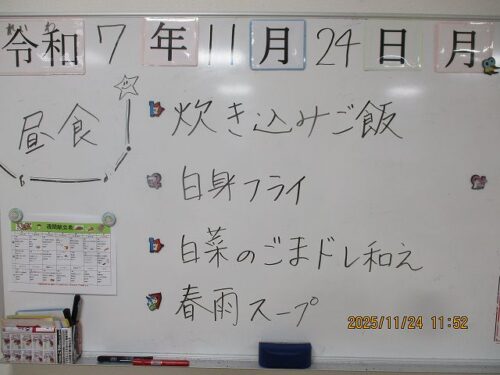 れい わ
令和 7 年 11 月 24 日 月
昼食
炊き込みご飯
白身フライ
白菜のごまドレ和え
春雨スープ
週間献立表
2025/11/24 11:52